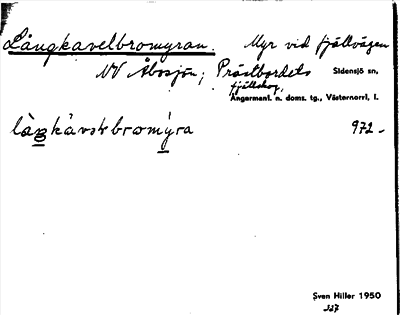 Långkavelbromyran. Myr vid fjällvägen
NV Åbosjön; Prästbordets Sidensjö sn,
fjällskog,
Ångermanl. n. doms. tg., Västernorrl. l.
làŋkàvstebromýra 972-
Sven Hiller 1950
227